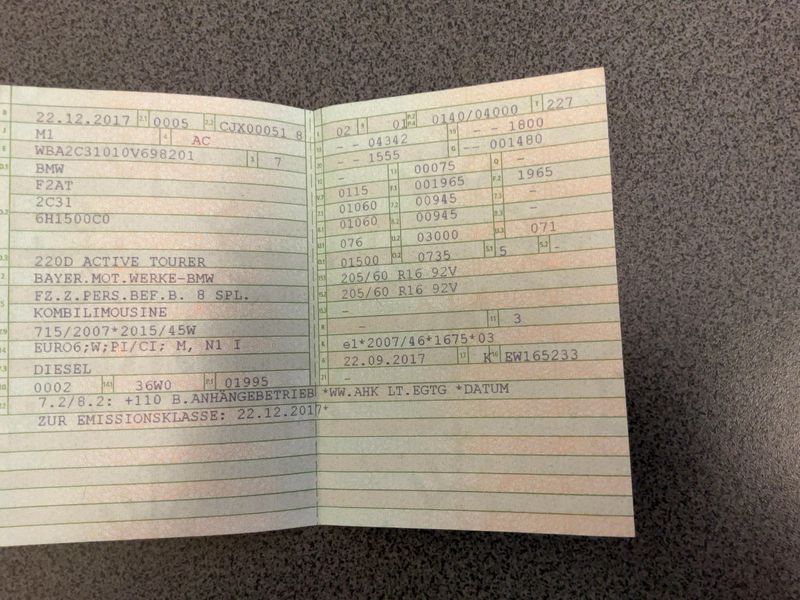 22.12.2017 2.1 0005 2.2 CJX00051 8
M1 4 AC
WBA2C31010V698201 3 7
BMW
F2AT
2C31
6H1500C0
220D ACTIVE TOURER
BAYER.MOT.WERKE-BMW
FZ.Z.PERS.BEF.B. 8 SPL.
KOMBILIMOUSINE
715/2007*2015/45W
EURO6;W;PI/CI; M, N1 I
DIESEL
0002 14.1 36W0 P.1 01995
7.2/8.2: +110 B.ANHÄNGEBETRIEB *WW.AHK LT.EGTG *DATUM
ZUR EMISSIONSKLASSE: 22.12.2017*
L 02 9 01 P.2 P.4 0140/04000 T 227
18 - - 04342 19 - - 1800
20 - - 1555 G - - 001480
12 - 13 00075 Q -
V.7 0115 F.1 001965 F.2 1965
7.1 01060 7.2 00945 7.3 -
8.1 01060 8.2 00945 8.3 -
U.1 076 U.2 03000 U.3 071
O.1 01500 O.2 0735 S.1 5 S.2 -
15.1 205/60 R16 92V
15.2 205/60 R16 92V
15.3 -
R - 11 3
K e1*2007/46*1675*03
6 22.09.2017 17 K 16 EW165233
21 -